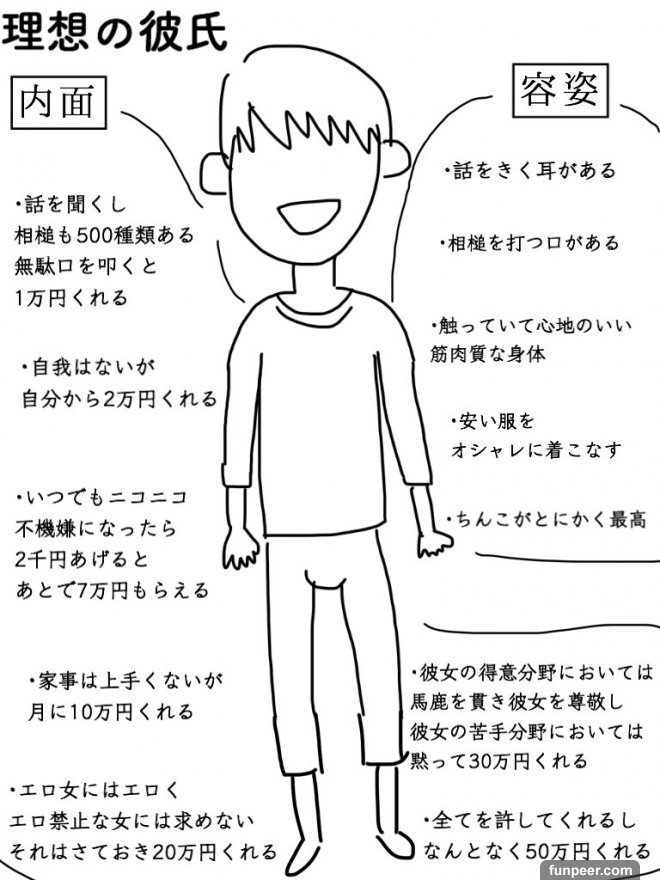 理想の彼氏
内面
・話を聞くし
相槌も500種類ある
無駄口を叩くと
1万円くれる
・自我はないが
自分から2万円くれる
・いつでもニコニコ
不機嫌になったら
2千円あげると
あとで7万円もらえる
・家事は上手くないが
月に10万円くれる
・エロ女にはエロく
エロ禁止な女には求めない
それはさておき20万円くれる
容姿
・話をきく耳がある
・相槌を打つ口がある
・触っていて心地のいい
筋肉質な身体
・安い服を
オシャレに着こなす
・ちんこがとにかく最高
・彼女の得意分野においては
馬鹿を貫き彼女を尊敬し
彼女の苦手分野においては
黙って30万円くれる
・全てを許してくれるし
なんとなく50万円くれる
funpeer.com